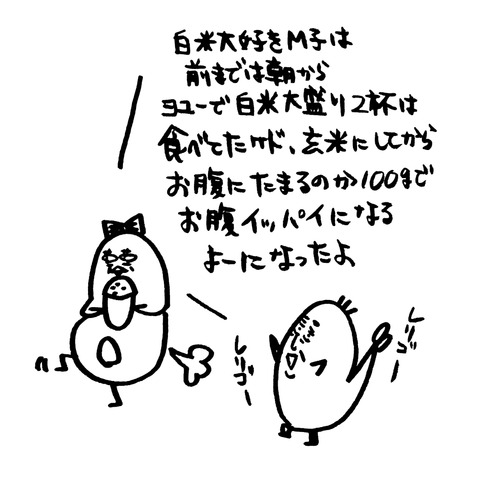 白米大好きM子は
前までは朝から
ヨユーで白米大盛り2杯は
食べてたけド、玄米にしてから
お腹にたまるのか100gで
お腹イッパイになる
よーになったよ
レリゴー
レリゴー